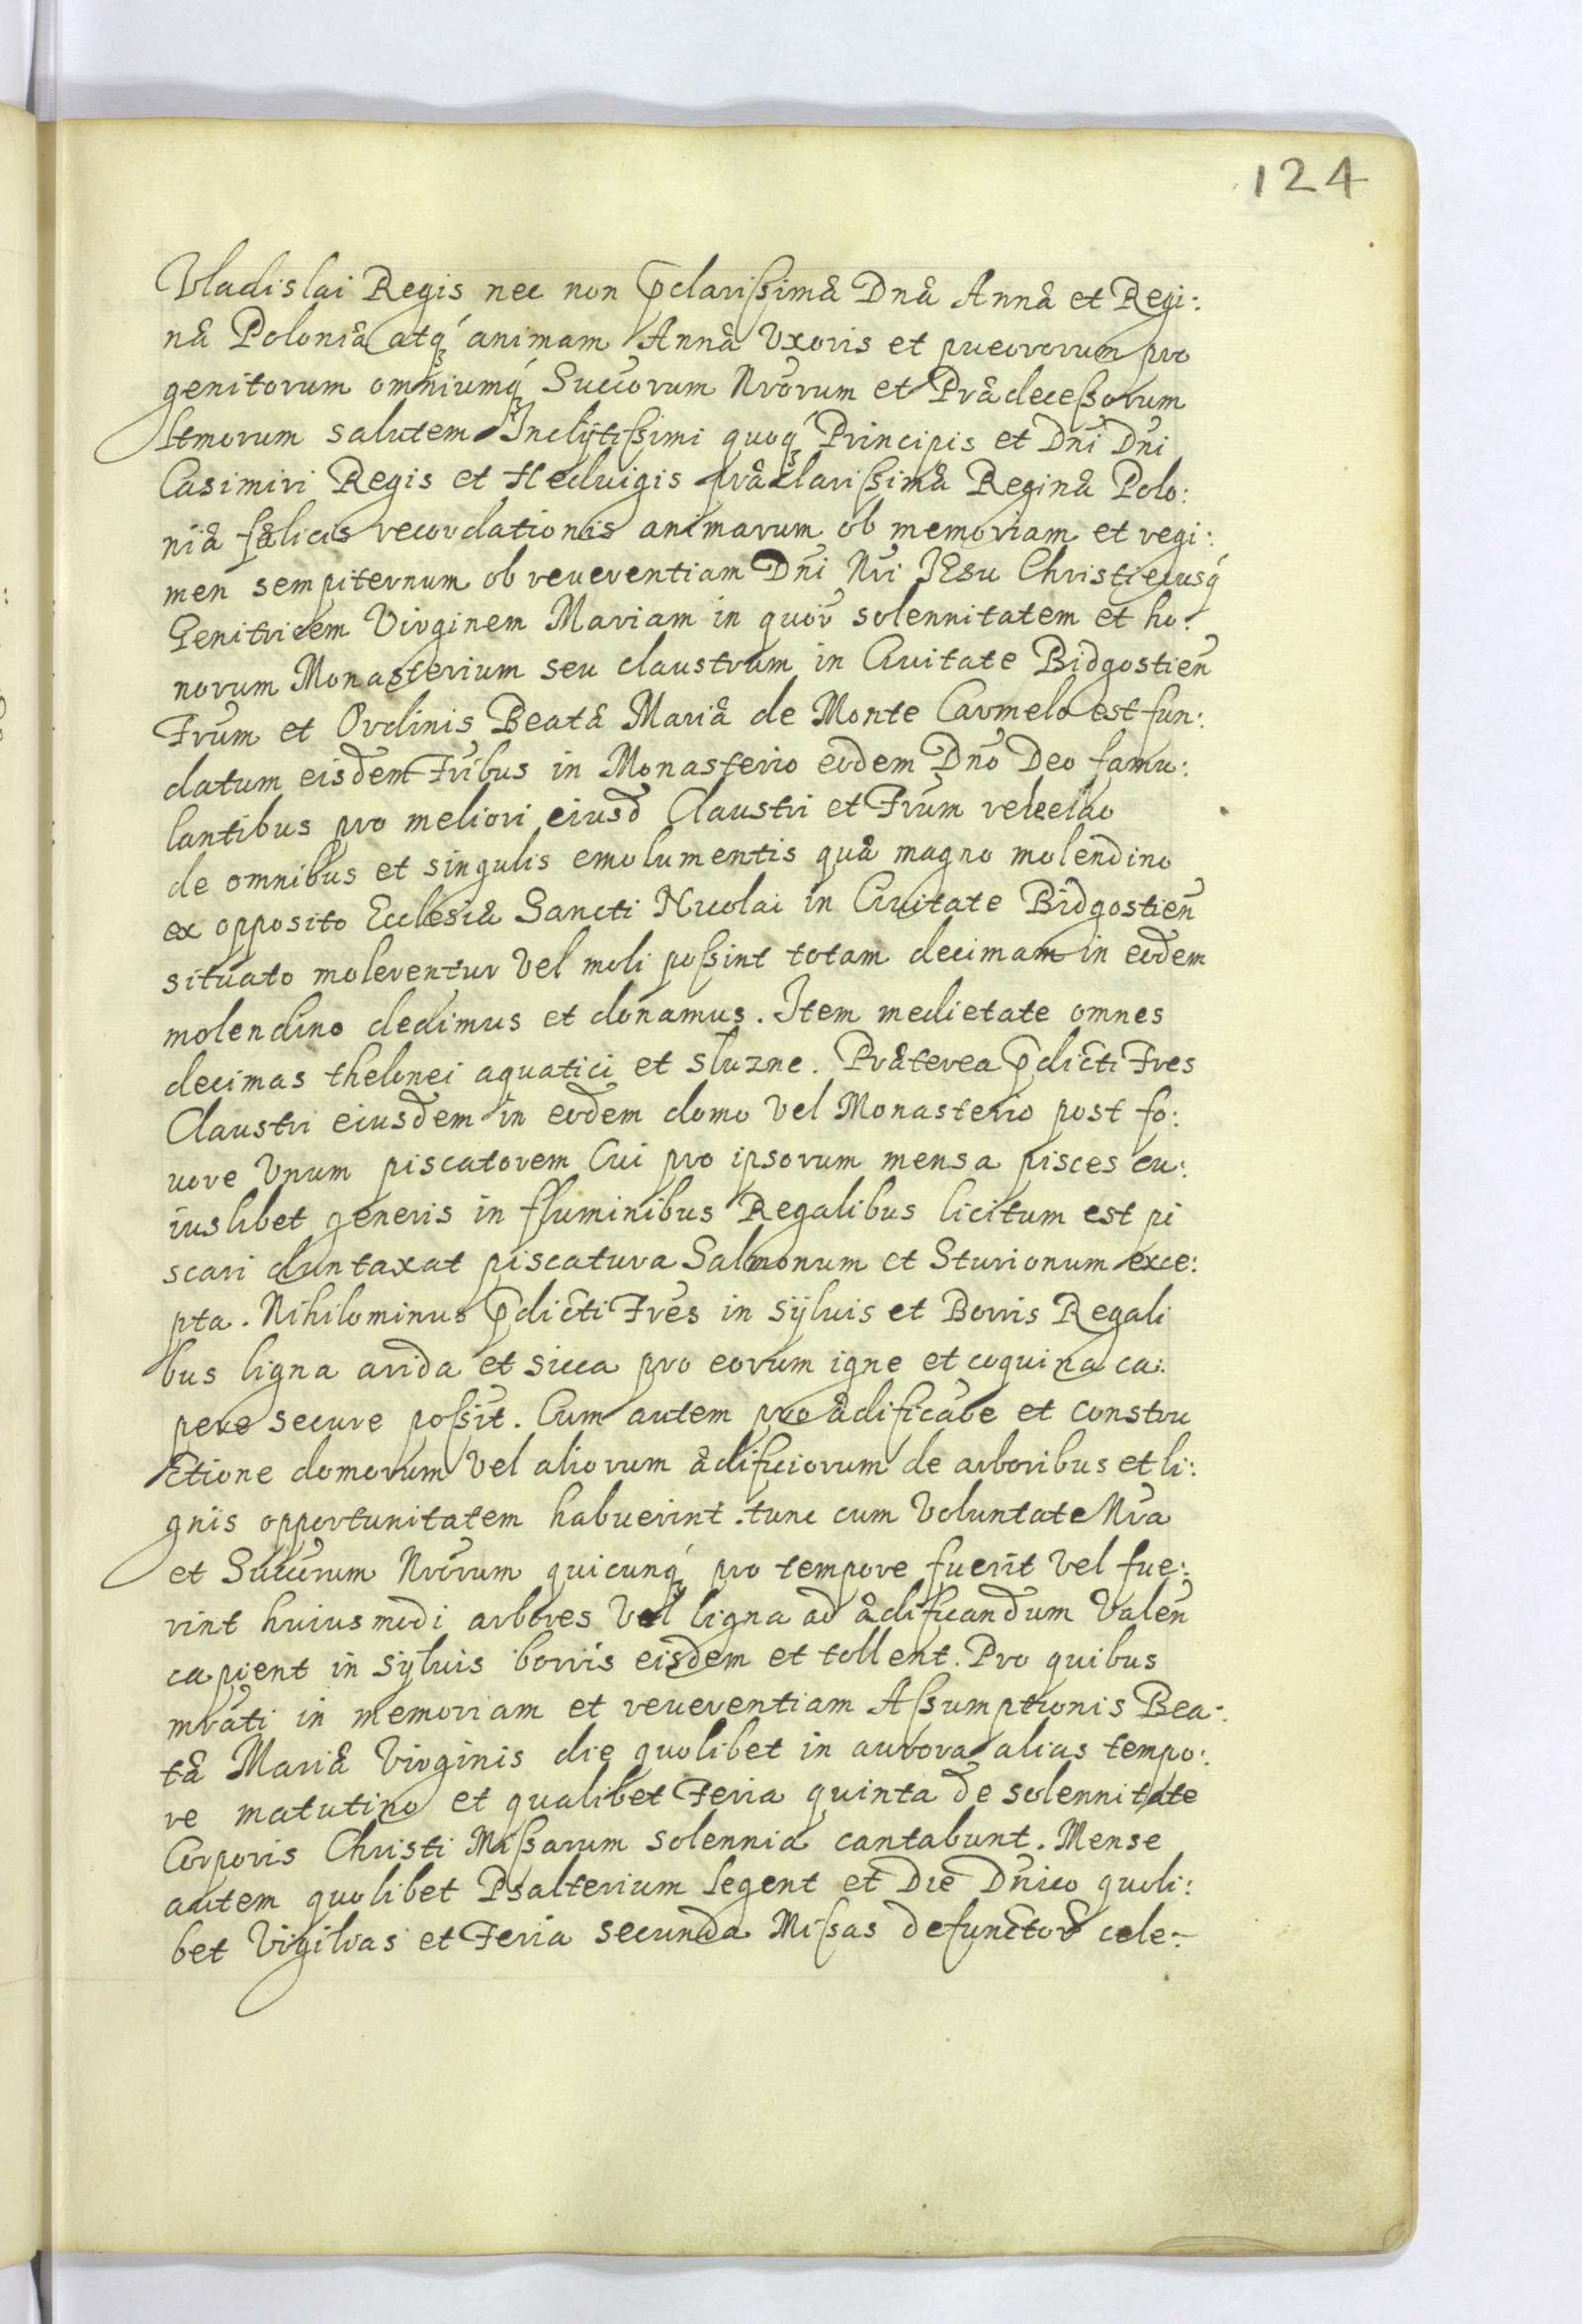 124
Vladislai Regis nec non p̄clarißimæ Dnæ Annæ et Regi:
næ Poloniæ atq́ȝ animam Annæ Vxoris et pueororum pro
genitorum omniumq́ȝ Succorum Nr̃orum et Prædeceßorum
ltmorum salutem Inclÿtißimi quoq́ȝ Principis et Dñi Dñi
Casimiri Regis et Heduigis præclarißimæ Reginæ Polo:
niæ fælicis recordationis animarum ob memoriam et regi:
men sempiternum ob reuerentiam Dñi Nr̃i JEsu Christi eiusq́
Genitricem Virginem Mariam in quor̃ solennitatem et ho:
norum Monasterium seu claustrum in Ciuitate Bidgostien̄
Fr̃um et Ordinis Beatæ Mariæ de Monte Carmelo est fun:
datum eisdem Fr̃ibus in Monasterio eodem Dño Deo famu:
lantibus pro meliori eiusd̄ Claustri et Fr̃um
de omnibus et singulis emolumentis quæ magno molendino
ex opposito Ecclesiæ Sancti Nicolai in Ciuitate Bidgostien̄
situato molerentur Vel moli poßint totam decimam in eodem
molendino dedimus et donamus. Item medietate omnes
decimas thelonei aquatici et sluzne. Præterea p̄dicti Fres
Claustri eiusdem in eodem domo Vel Monasterio post fo:
uore Vnum piscatorem Cui pro ipsorum mensa pisces cu:
iuslibet generis in ffluminibus Regalibus licitum est pi
scari duntaxat piscatura Salmonum et Sturionum exce:
pta. Nihilominus p̄dicti Fr̃es in sÿluis et Borris Regali
bus ligna arida et sicca pro eorum igne et coquina ca:
pere secure poßit. Cum autem pro ædificãoe et constru
ctione domorum Vel aliorum ædificiorum de arboribus et li:
gnis opportunitatem habuerint tunc cum Voluntate Nr̃a
et Succorum Nr̃orum quicunq́ȝ pro tempore fuerit Vel fue:
rint huiusmodi arbores Vel ligna ad ædificandum Valen̄
capient in sÿluis borris eisdem et tollent. Pro quibus
mr̃ati in memoriam et reuerentiam Aßumptionis Bea:
tæ Mariæ Virginis die quolibet in aurora alias tempo:
re matutino et qualibet Feria quinta de solennitate
Corporis Christi Mißarum solennia cantabunt. Mense
autem quolibet Psalterium legent et Die Dñico quoli:
bet Vigilias et Feria secunda Mißas defunctor̃ cele: